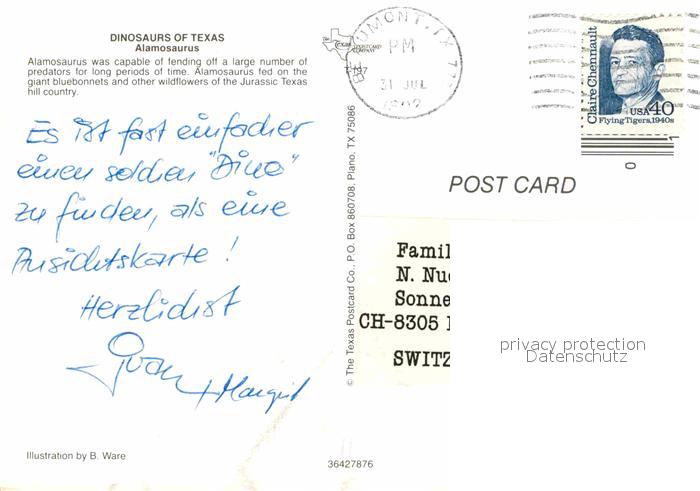 DINOSAURS OF TEXAS
Alamosaurus
Alamosaurus was capable of fending off a large number of
predators for long periods of time. Alamosaurus fed on the
giant bluebonnets and other wildflowers of the Jurassic Texas
hill country.
Es ist fast einfacher
einen solchen "Dino"
zu finden, als eine
Ansichtskarte!
Herzlichst
+ Margrit
Illustration by B. Ware
© The Texas Postcard Co., P.O. Box 860708, Plano, TX 75086
TEXAS POSTCARD
COMPANY
BEAUMONT, TX
PM
31 JUL
Claire Chennault
USA 40
Flying Tigers, 1940s
0
POST CARD
Famil
N. Nu
Sonne
CH-8305
SWITZ
privacy protection
Datenschutz
36427876